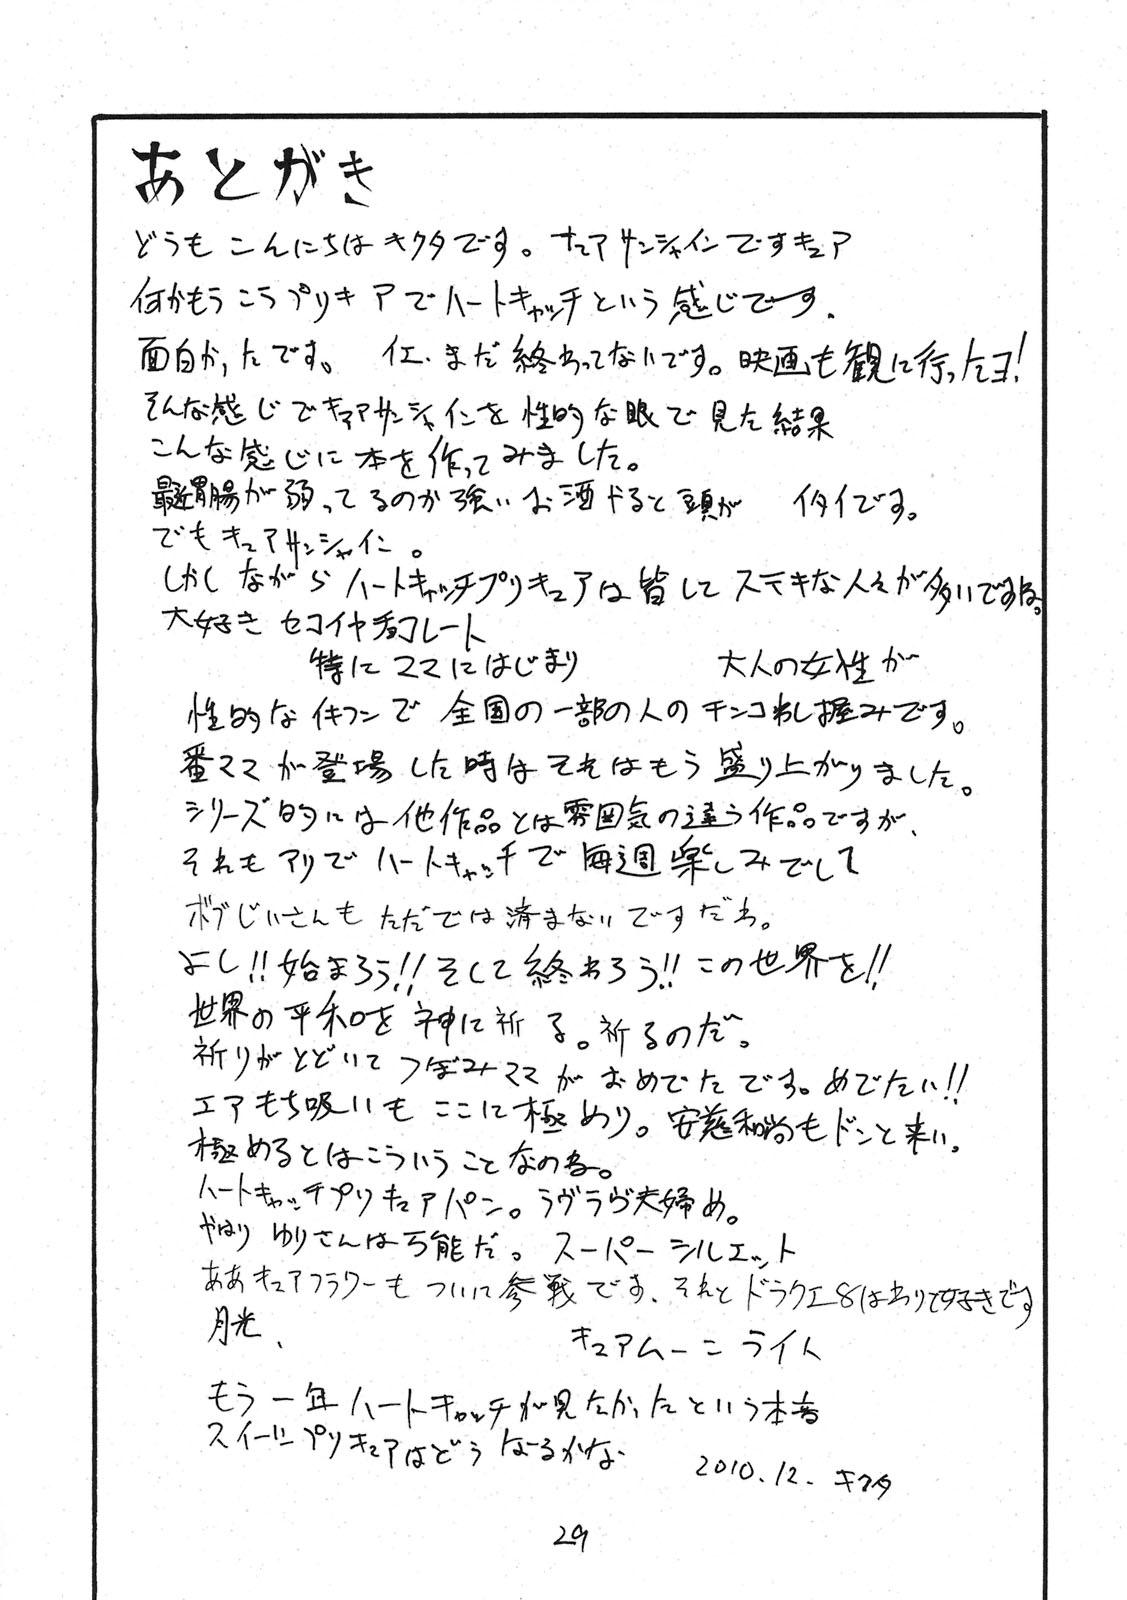 あとがき
どうも こんにちは キクタです。 キュアサンシャインですキュア
何かもうこうプリキアでハートキャッチという感じです.
面白かったです。 イエ、まだ終わってないです。映画も観に行ったヨ!
そんな感じでキュアサンシャインを性的な眼で見た結果
こんな感じに本を作ってみました。
最近胃腸が弱ってるのか強いお酒やると頭が イタイです。
でもキュアサンシャイン。
しかしながらハートキャッチプリキュアは皆してステキな人々が多いですね。
大好き セコイヤチョコレート
特にママにはじまり 大人の女性が
性的なイキフンで全国の一部の人のチンコわし握みです。
番ママが登場した時はそれはもう盛り上がりました。
シリーズ的には他作品とは雰囲気の違う作品ですが、
それもアリでハートキャッチで毎週楽しみでして
ボブじいさんもただでは済まないですだわ。
よし!!始まろう!!そして終わろう!!この世界を!!
世界の平和を神に祈る。祈るのだ。
祈りがとどいてつぼみママがおめでたです。めでたい!!
エアもち吸いもここに極めり。安慈和尚もドンと来い。
極めるとはこういうことなのね。
ハートキャッチプリキュアパン。ラヴラヴ夫婦め。
やはりゆりさんは万能だ。スーパーシルエット
ああキュアフラワーもついに参戦です、それとドラクエ8はわりと好きです
月光、 キュアムーンライト
もう一年ハートキャッチが見たかったという本音
スイートプリキュアはどうなるかな
2010.12. キクタ
29